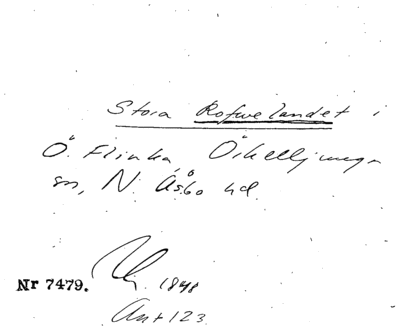 Stora Rofwelandet i
Ö. Flinka, Örkelljunga
sn, N. Åsbo hd.
Nr 7479. 1848
Ant 123